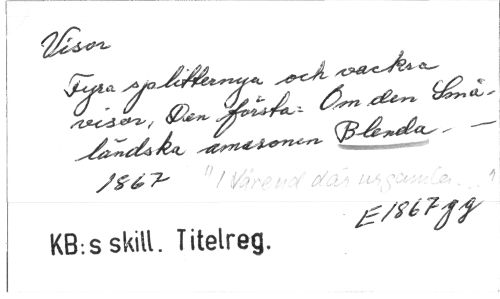 Visor
Fyra splitternya och vackra
visor, Den första: Om den Små-
ländska amasonen Blenda. —
1867 "I Värend där urgamla...."
E1867 gg
KB:s skill. Titelreg.